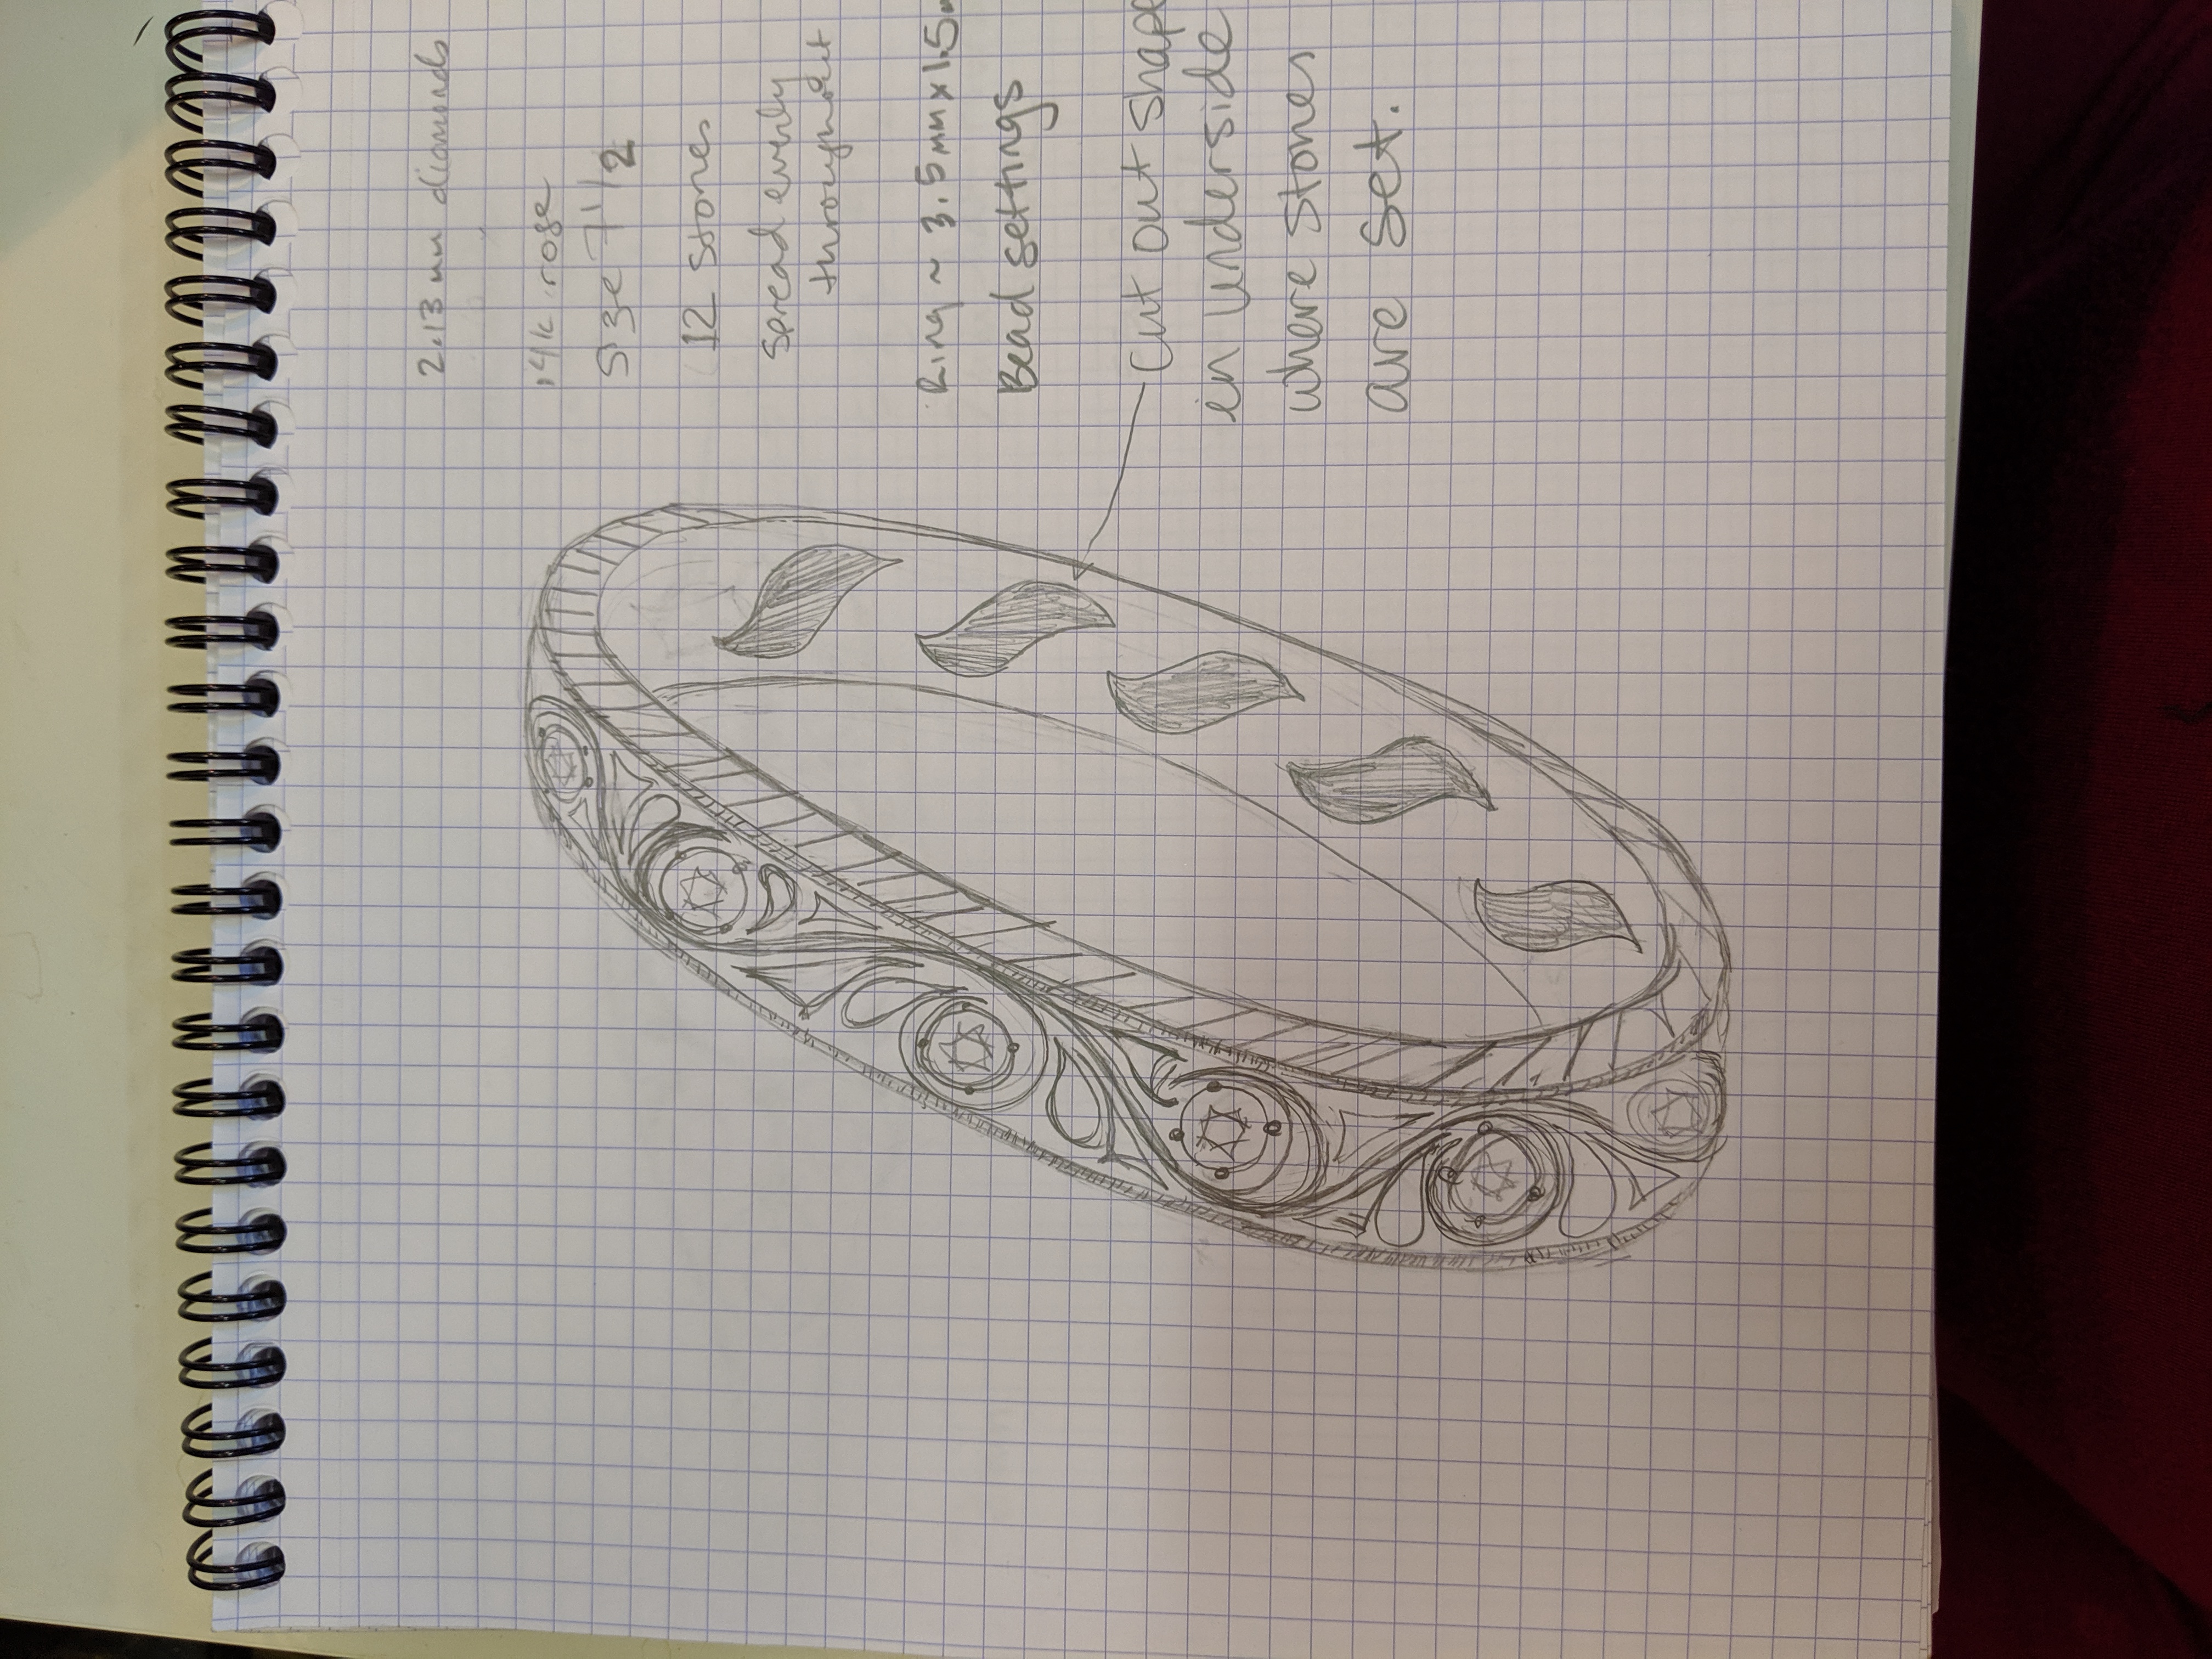 2.13 mm diamonds
14k rose
size 7 1/2
12 stones
spread evenly
throughout
Ring ~ 3.5mm x 1.5
Bead settings
Cut out shap
in underside
where stones
are set.